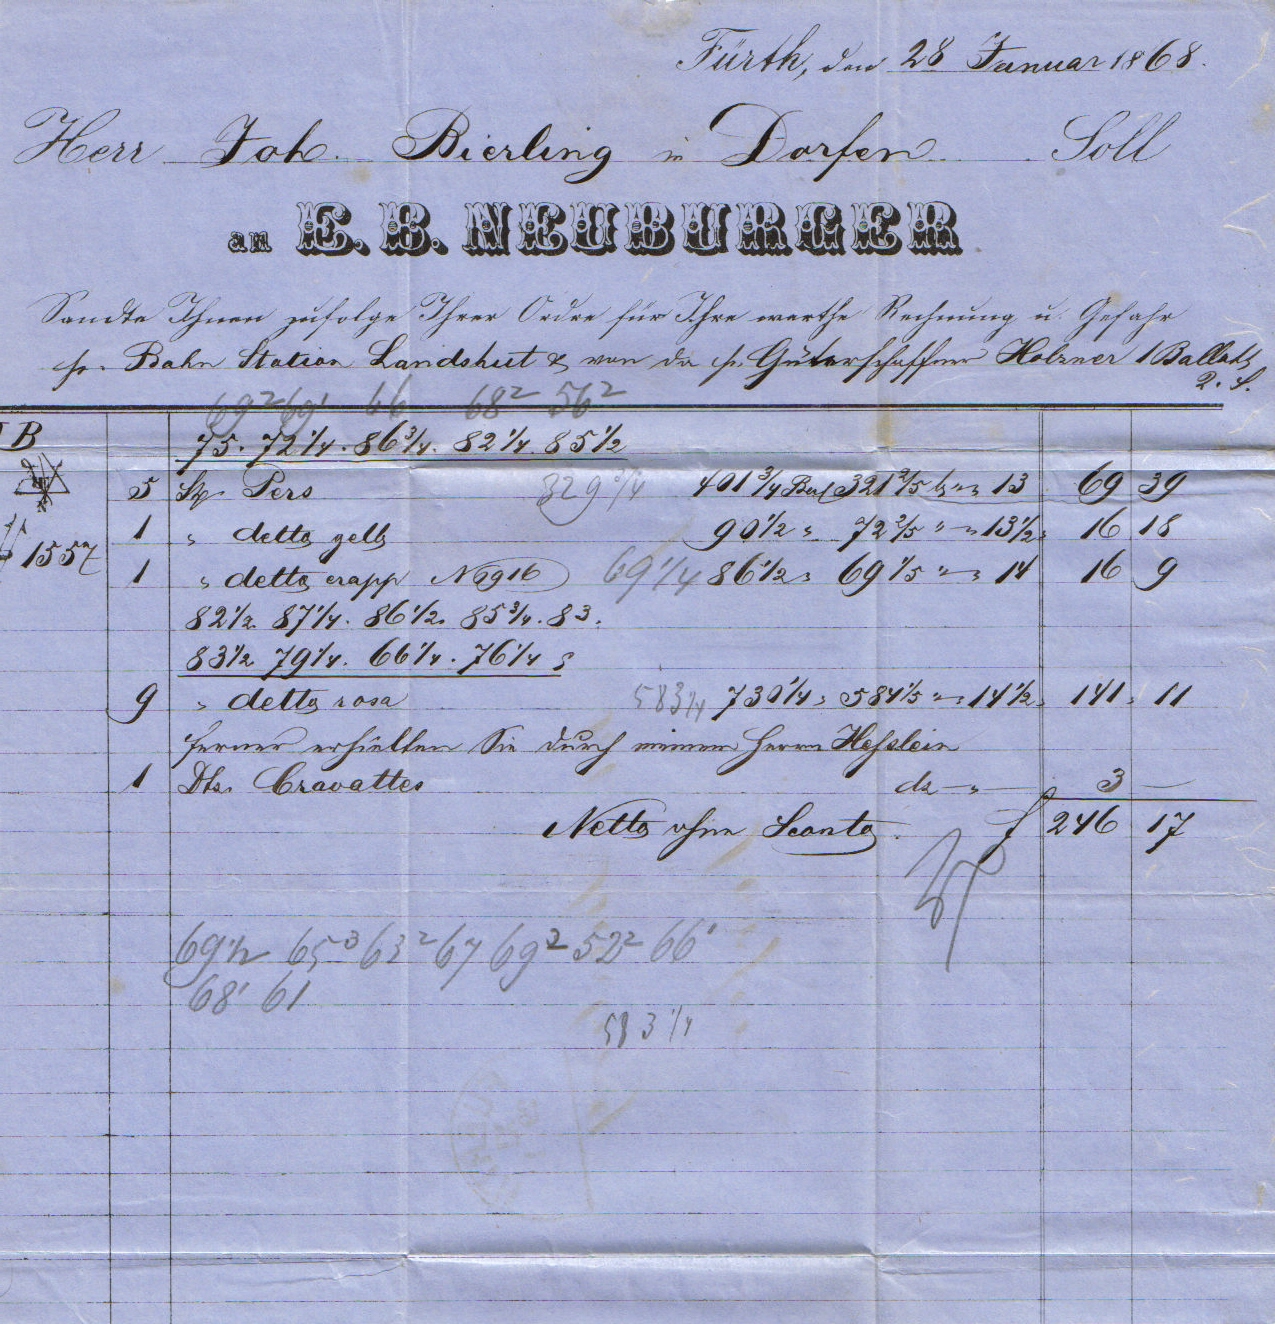 Fürth, den 28 Januar 1868.
Herr Joh. Bierling in Dorfen Soll
an E. B. NEUBURGER
Sandte Ihnen zufolge Ihrer Ordre für Ihre werthe Rechnung u. Gefahr
pr. Bahn Station Landshut & von da pr. Güterschaffner Holzner 1 Ballot
69² 69' 66 68² 56²
B 75. 72 1/4. 86 3/4. 82 1/4. 85 1/2
5 Stp Pers 329 3/4 401 3/4 321 2/5 " 13 69 39
1 " detto gelb 90 1/2 " 72 2/5 " " 13 1/2 16 18
1557 1 " detto crapp N 1916 69 1/4 86 1/2 " 69 1/5 " " 14 16 9
82 1/2. 87 1/4. 86 1/2. 85 3/4. 83.
83 1/2 79 1/4. 66 1/4. 76 1/4
9 " detto rosa 583 1/4 730 1/4 " 584 1/5 " " 14 1/2 141 11
ferner erhielten Sie durch meinen Herrn Hesslein
1 Dtz. Cravattes 3 —
Netto ohne Sconto. f 246 17
69 1/2 65³ 63² 67 69² 52² 66'
68' 61
583 1/4